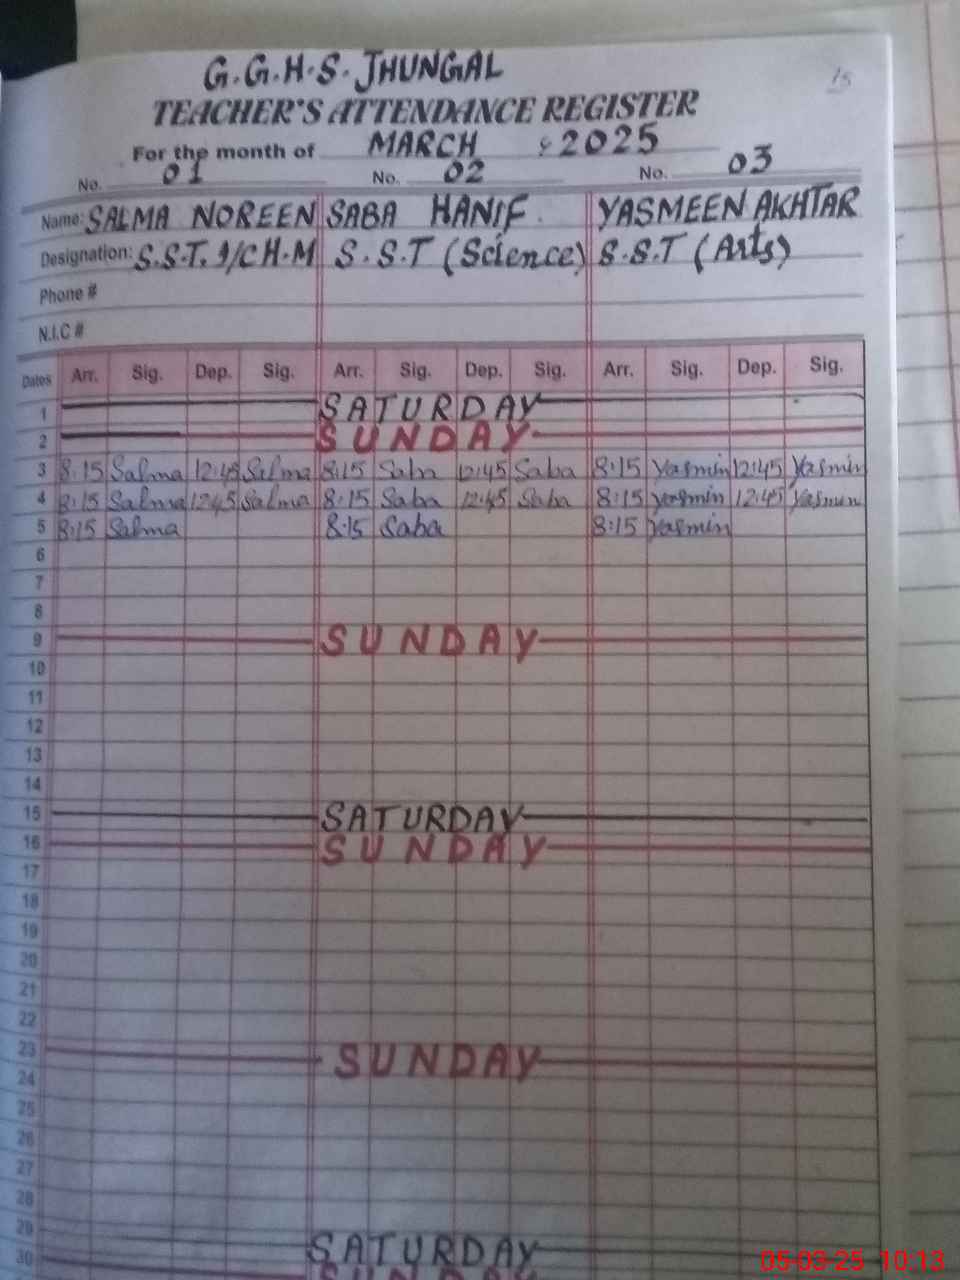 15
G.G.H.S. JHUNGAL
TEACHER'S ATTENDANCE REGISTER
For the month of MARCH 2025
No. 01 No. 02 No. 03
Name: SALMA NOREEN SABA HANIF. YASMEEN AKHTAR
Designation: S.S.T. I/C H.M S.S.T (Science) S.S.T (Arts)
Phone #
N.I.C #
Dates Arr. Sig. Dep. Sig. Arr. Sig. Dep. Sig. Arr. Sig. Dep. Sig.
1 SATURDAY
2 SUNDAY
3 8:15 Salma 12:45 Salma 8:15 Saba 12:45 Saba 8:15 Yasmin 12:45 Yasmin
4 8:15 Salma 12:45 Salma 8:15 Saba 12:45 Saba 8:15 Yasmin 12:45 Yasmin
5 8:15 Salma 8:15 Saba 8:15 Yasmin
6
7
8
9 SUNDAY
10
11
12
13
14
15 SATURDAY
16 SUNDAY
17
18
19
20
21
22
23 SUNDAY
24
25
26
27
28
29 SATURDAY
30 SUNDAY
05-03-25 10:13